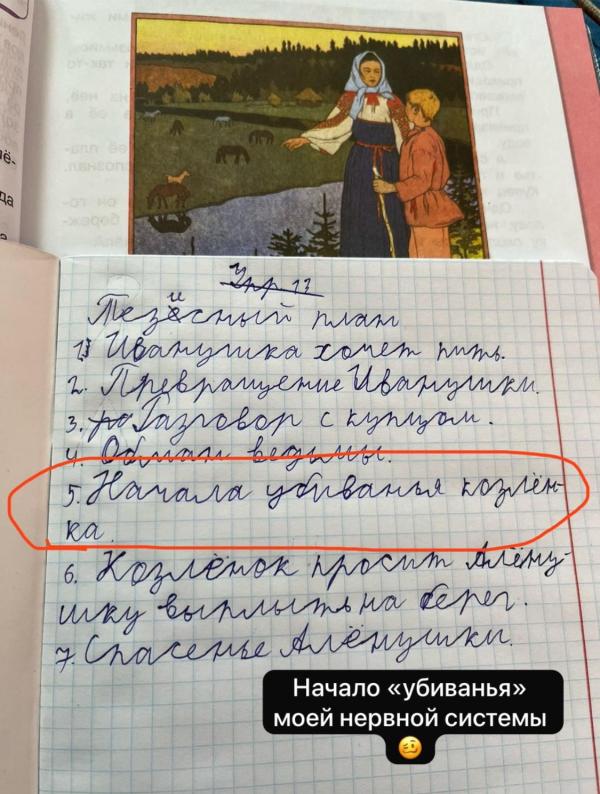 Упр 13
Тезисный план
1. Иванушка хочет пить.
2. Превращение Иванушки.
3. Разговор с купцом.
4. Обман ведьмы.
5. Начала убиванья козлён-
ка.
6. Козлёнок просит Алёну-
шку выплыть на берег.
7. Спасенье Алёнушки.
Начало «убиванья»
моей нервной системы